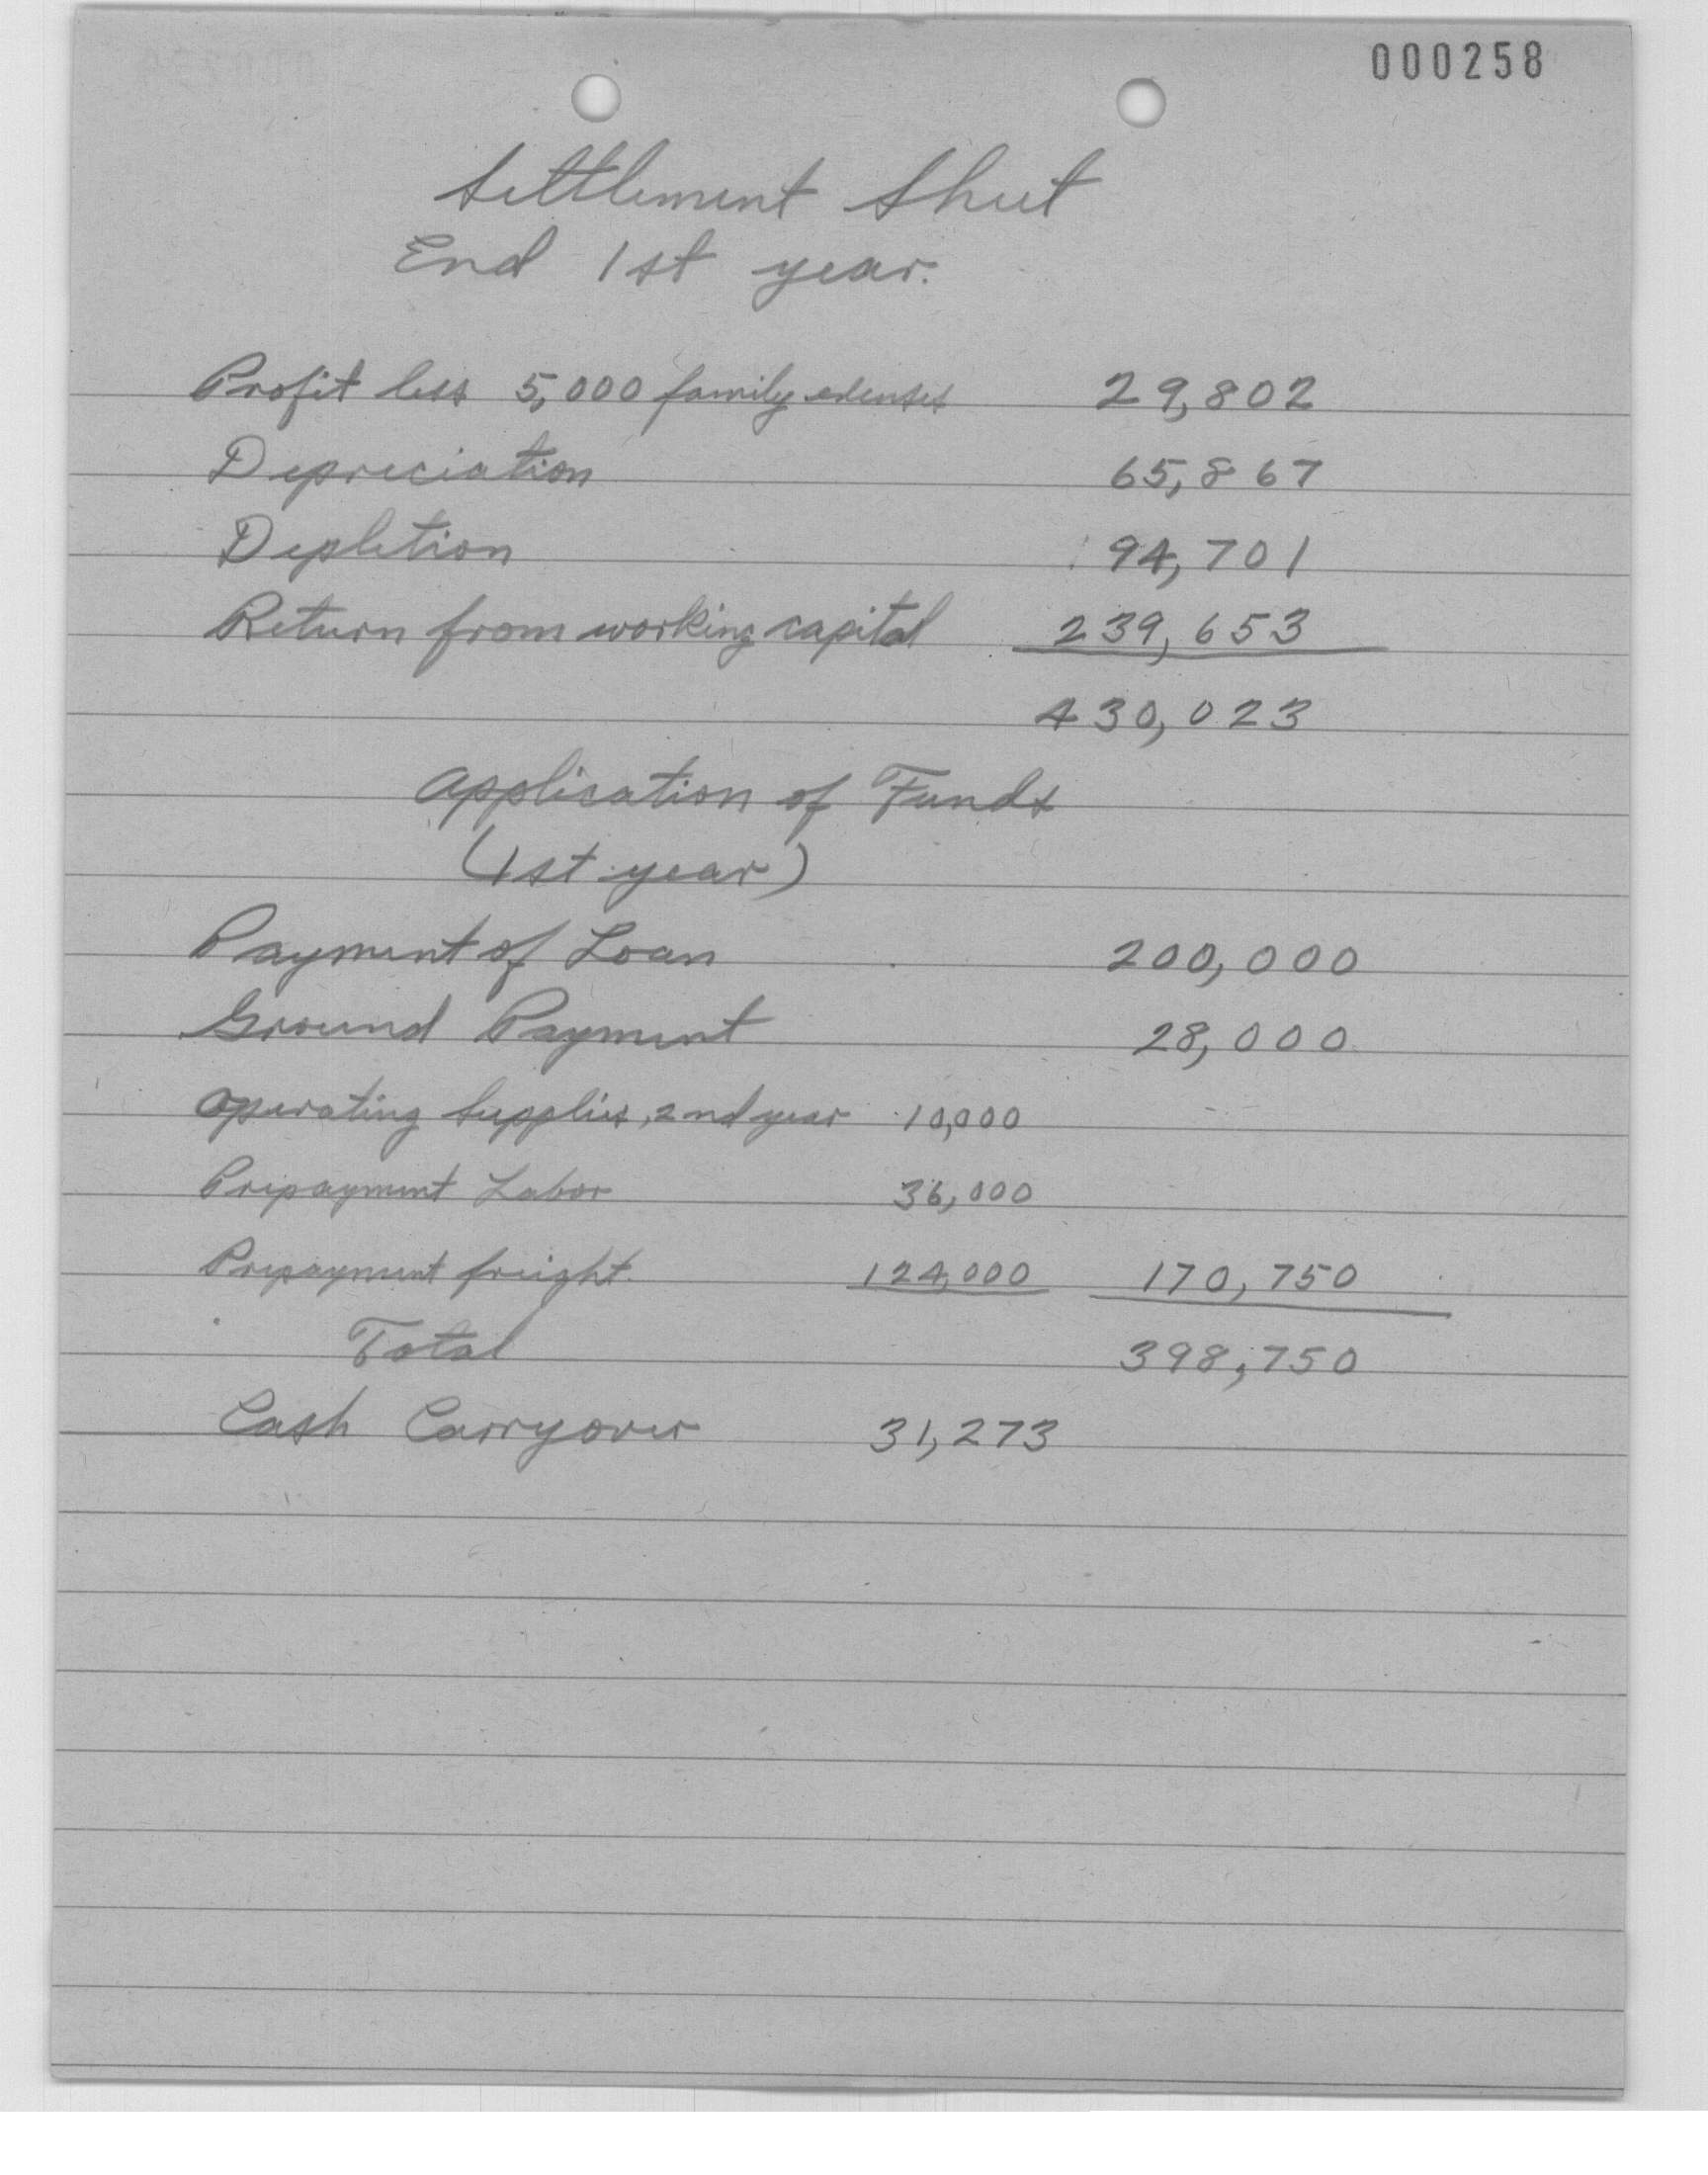 000258
Settlement Sheet
End 1st year.
Profit less 5,000 family expenses 29,802
Depreciation 65,867
Depletion 94,701
Return from working capital 239,653
430,023
Application of Funds
(1st year)
Payment of Loan 200,000
Ground Payment 28,000
Operating Supplies, 2nd year 10,000
Prepayment Labor 36,000
Prepayment freight. 124,000 170,750
Total 398,750
Cash Carryover 31,273